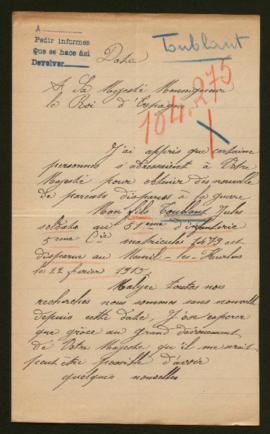 A
Pedir informes
que se hace así
Devolver
Toublant
Data
104.275
A Sa Majesté Monseigneur
le Roi d'Espagne
J'ai appris que certaine
personnes s'adressaient à Votre
Majesté pour obtenir des nouvelle
de parents disparus à la guerre
Mon fils Toublant Jules
soldats au 51 eme d'infanterie
5 eme Cie matricules 7479 est
disparue au Mesnil-les-Hurlus
le 22 février 1915.
Malgré toutes nos
recherches nous sommes sans nouvelle
depuis cette date, J'ose espérer
que grâce au grand dévouement
de Votre Majesté qu'il me serait
peut être possible d'avoir
quelques nouvelles